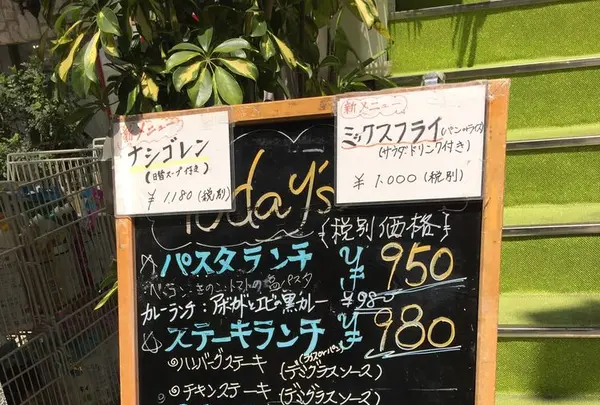 新メニュー
ナシゴレン
(日替スープ付き)
¥1,180(税別)
新メニュー
ミックスフライ(パンorライス)
(サラダ・ドリンク付き)
¥1,000(税別)
Today's
{税別価格}
パスタランチ ¥950
きのこ・トマトの塩パスタ
カレーランチ:アボカドとエビの黒カレー ¥980
ステーキランチ ¥980
(ライスorパン)
◎ハンバーグステーキ (デミグラスソース)
◎チキンステーキ (デミグラスソース)